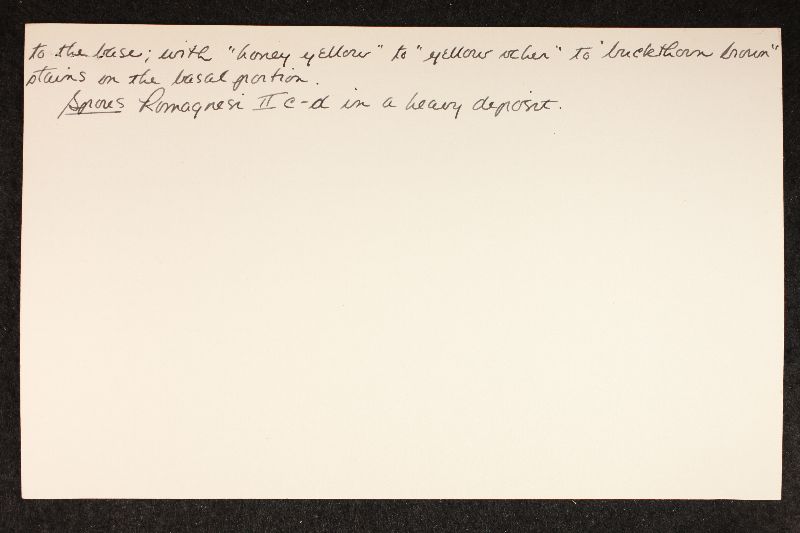 to the base; with "honey yellow" to "yellow ocher" to "buckthorn brown"
stains on the basal portion.
Spores Romagnesi II c-d in a heavy deposit.